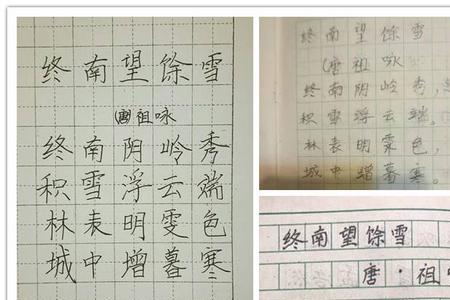 终南望馀雪
(唐)祖咏
终南阴岭秀
积雪浮云端
林表明雯色
城中增暮寒
终南望馀雪
(唐 祖咏
终南阴岭秀,
积雪浮云端。
林表明霁色,
城中增暮寒。
终南望馀雪
唐·祖